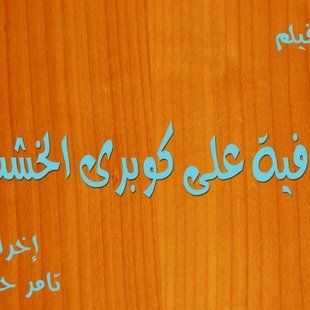 فيلم
فية على كوبرى الخشب
إخرا
تامر ح